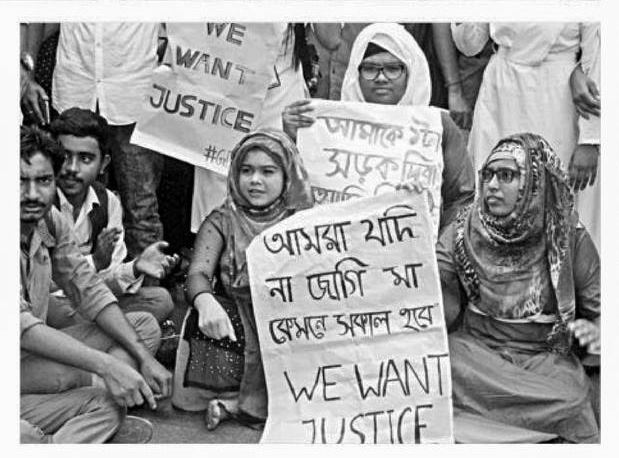 WE
WANT
JUSTICE
আমাকে
সড়ক
আমরা যদি
না জাগি মা
কেমনে সকাল হবে
WE WANT
JUSTICE